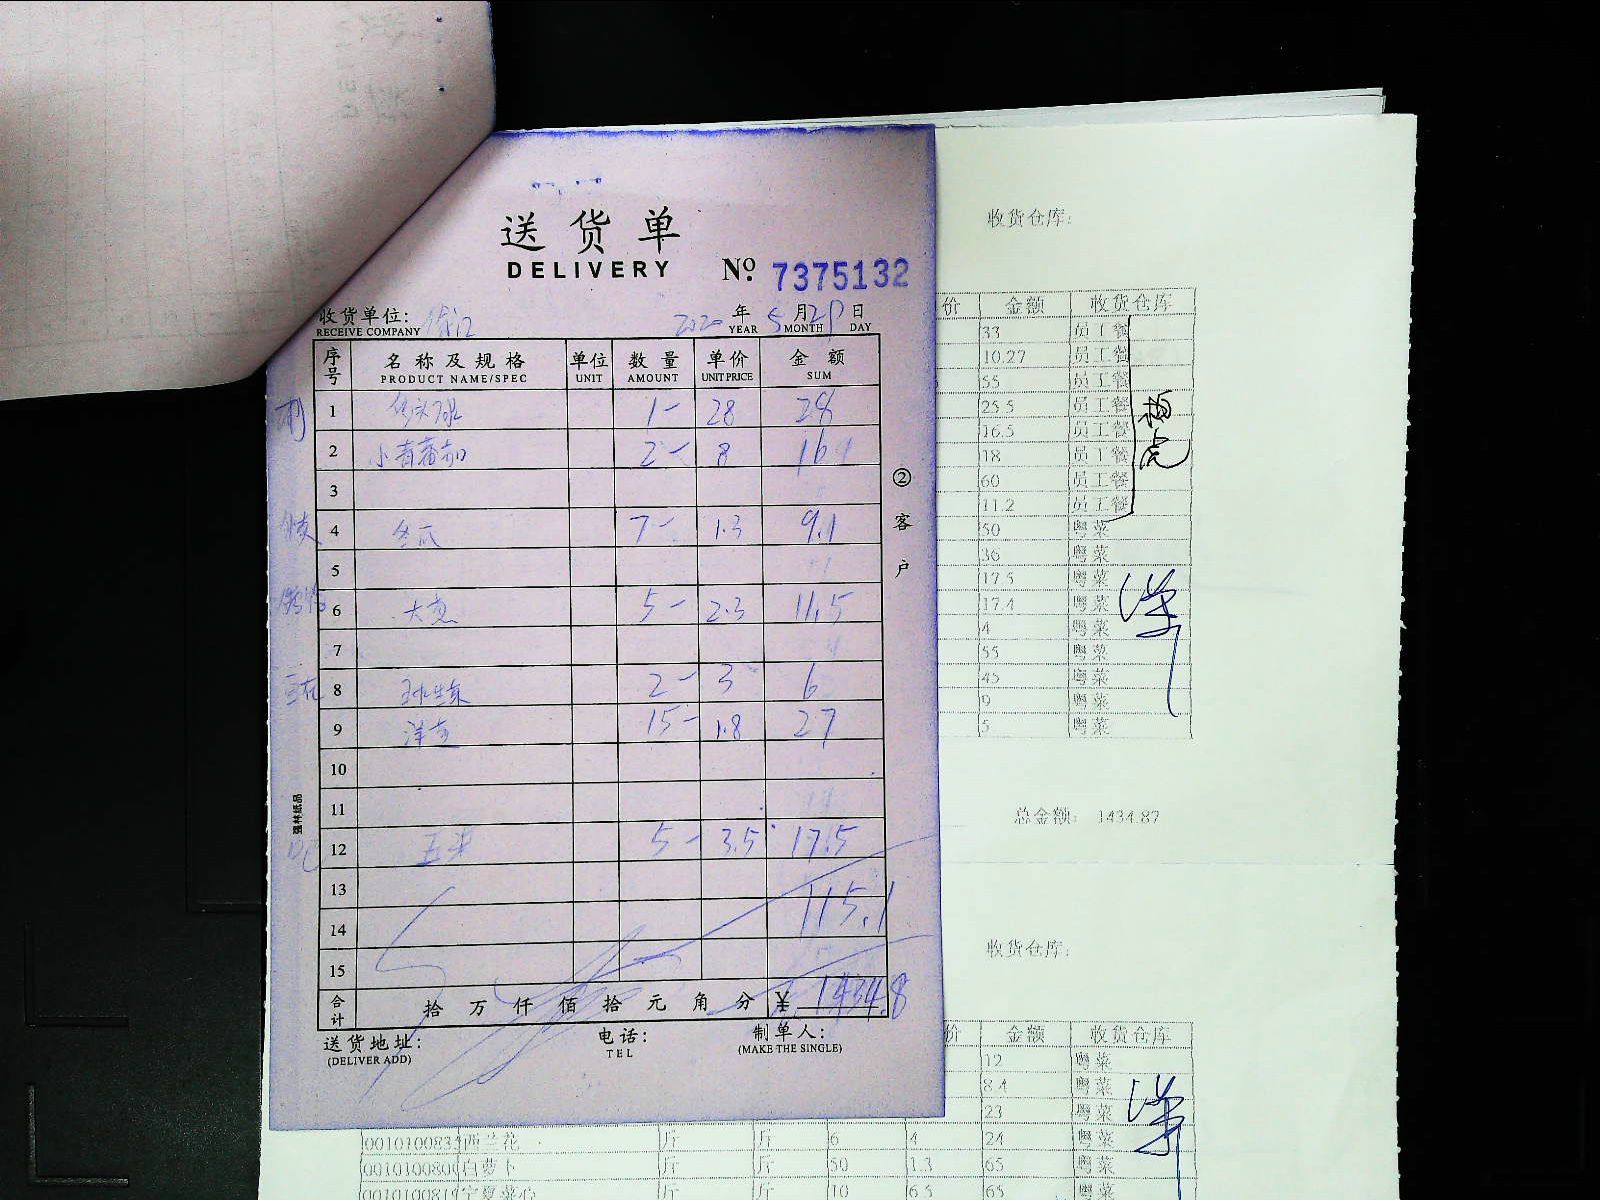 送货单
DELIVERY
№ 7375132
收货单位:
RECEIVE COMPANY
2020 年 5 月 日
YEAR MONTH DAY
序号 名称及规格 单位 数量 单价 金额
PRODUCT NAME/SPEC UNIT AMOUNT UNIT PRICE SUM
1 1- 28 28
2 小青番茄 2- 8 16
3
4 冬瓜 7- 1.3 9.1
5
6 大葱 5- 2.3 11.5
7
8 2- 3 6
豆花
9 洋葱 15- 1.8 27
10
11
12 玉米 5- 3.5 17.5
13
115.1
14
15
合计 拾 万 仟 佰 拾 元 角 分 ¥ 1434.8
送货地址: 电话: 制单人:
(DELIVER ADD) TEL (MAKE THE SINGLE)
②客户
强林纸品
收货仓库:
价 金额 收货仓库
33 员工餐
10.27 员工餐
55 员工餐
25.5 员工餐
16.5 员工餐
18 员工餐
60 员工餐
11.2 员工餐
50 粤菜
36 粤菜
17.5 粤菜
17.4 粤菜
4 粤菜
55 粤菜
45 粤菜
9 粤菜
5 粤菜
总金额: 1434.87
收货仓库:
价 金额 收货仓库
12 粤菜
8.4 粤菜
23 粤菜
西兰花 斤 斤 6 4 24 粤菜
白萝卜 斤 斤 50 1.3 65 粤菜
宁夏菜心 斤 斤 10 6.5 65 粤菜